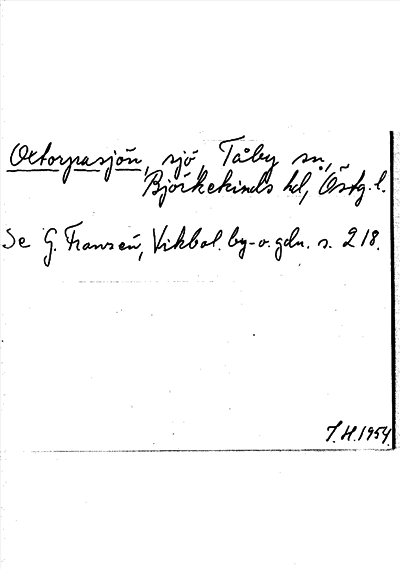 Oxtorpasjön, sjö, Tåby sn,
Björkekinds hd, Östg. l.
Se G. Franzén, Vikbol. by- o. gdn. s. 218.
J. H. 1954.